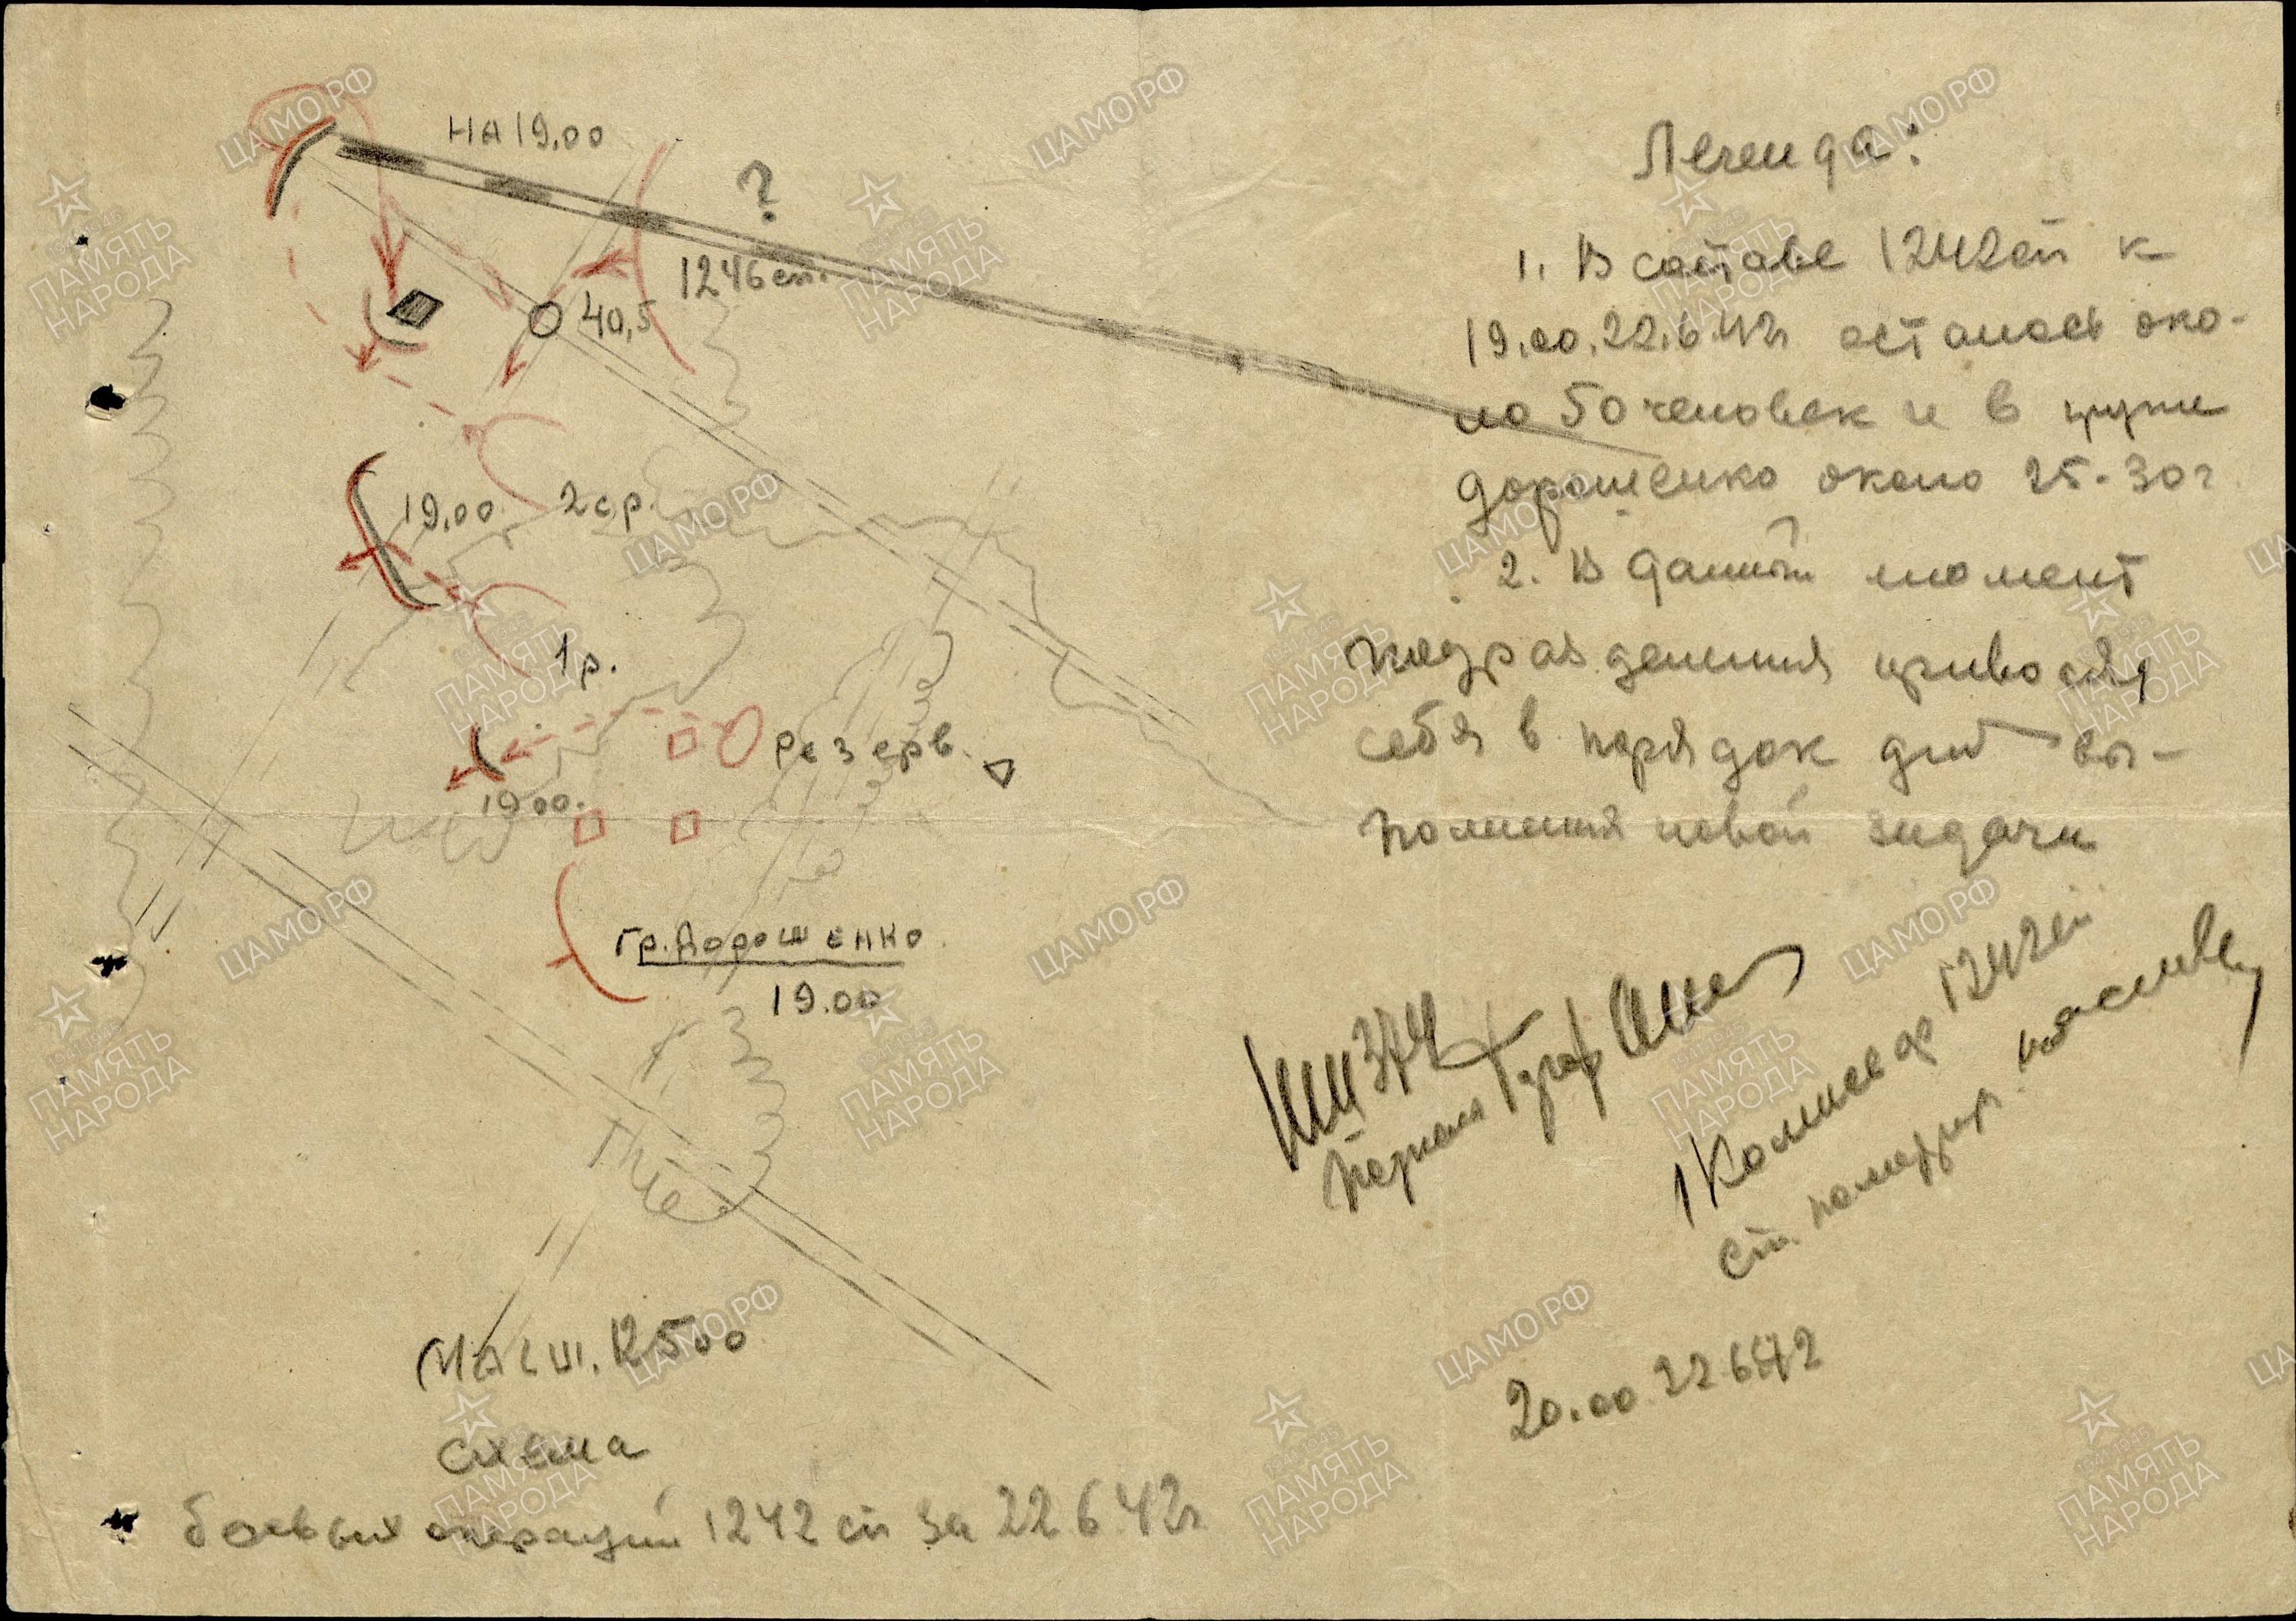 НА 19.00
?
1246 сп.
40,5
19.00
2 ср.
1 р.
резерв.
19.00.
гр. Дорошенко
19.00
Масш. 12500
схема
боевых операций 1242 сп за 22 6 42 г
Легенда:
1. В составе 1242 сп к
19.00. 22.6.42 г осталось око-
ло 50 человек и в группе
Дорошенко около 25-30 ч
2. В данный момент
подразделения приводят
себя в порядок для вы-
полнения новой задачи
Комиссар 1242 сп
ст.
20.00 22 6 42
ЦАМО РФ
ПАМЯТЬ
НАРОДА